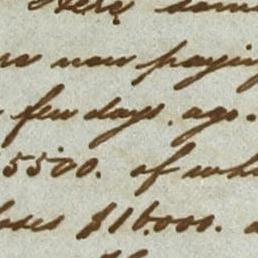 Here som
now paying
few days ago.
5500. of wh
$16.000.